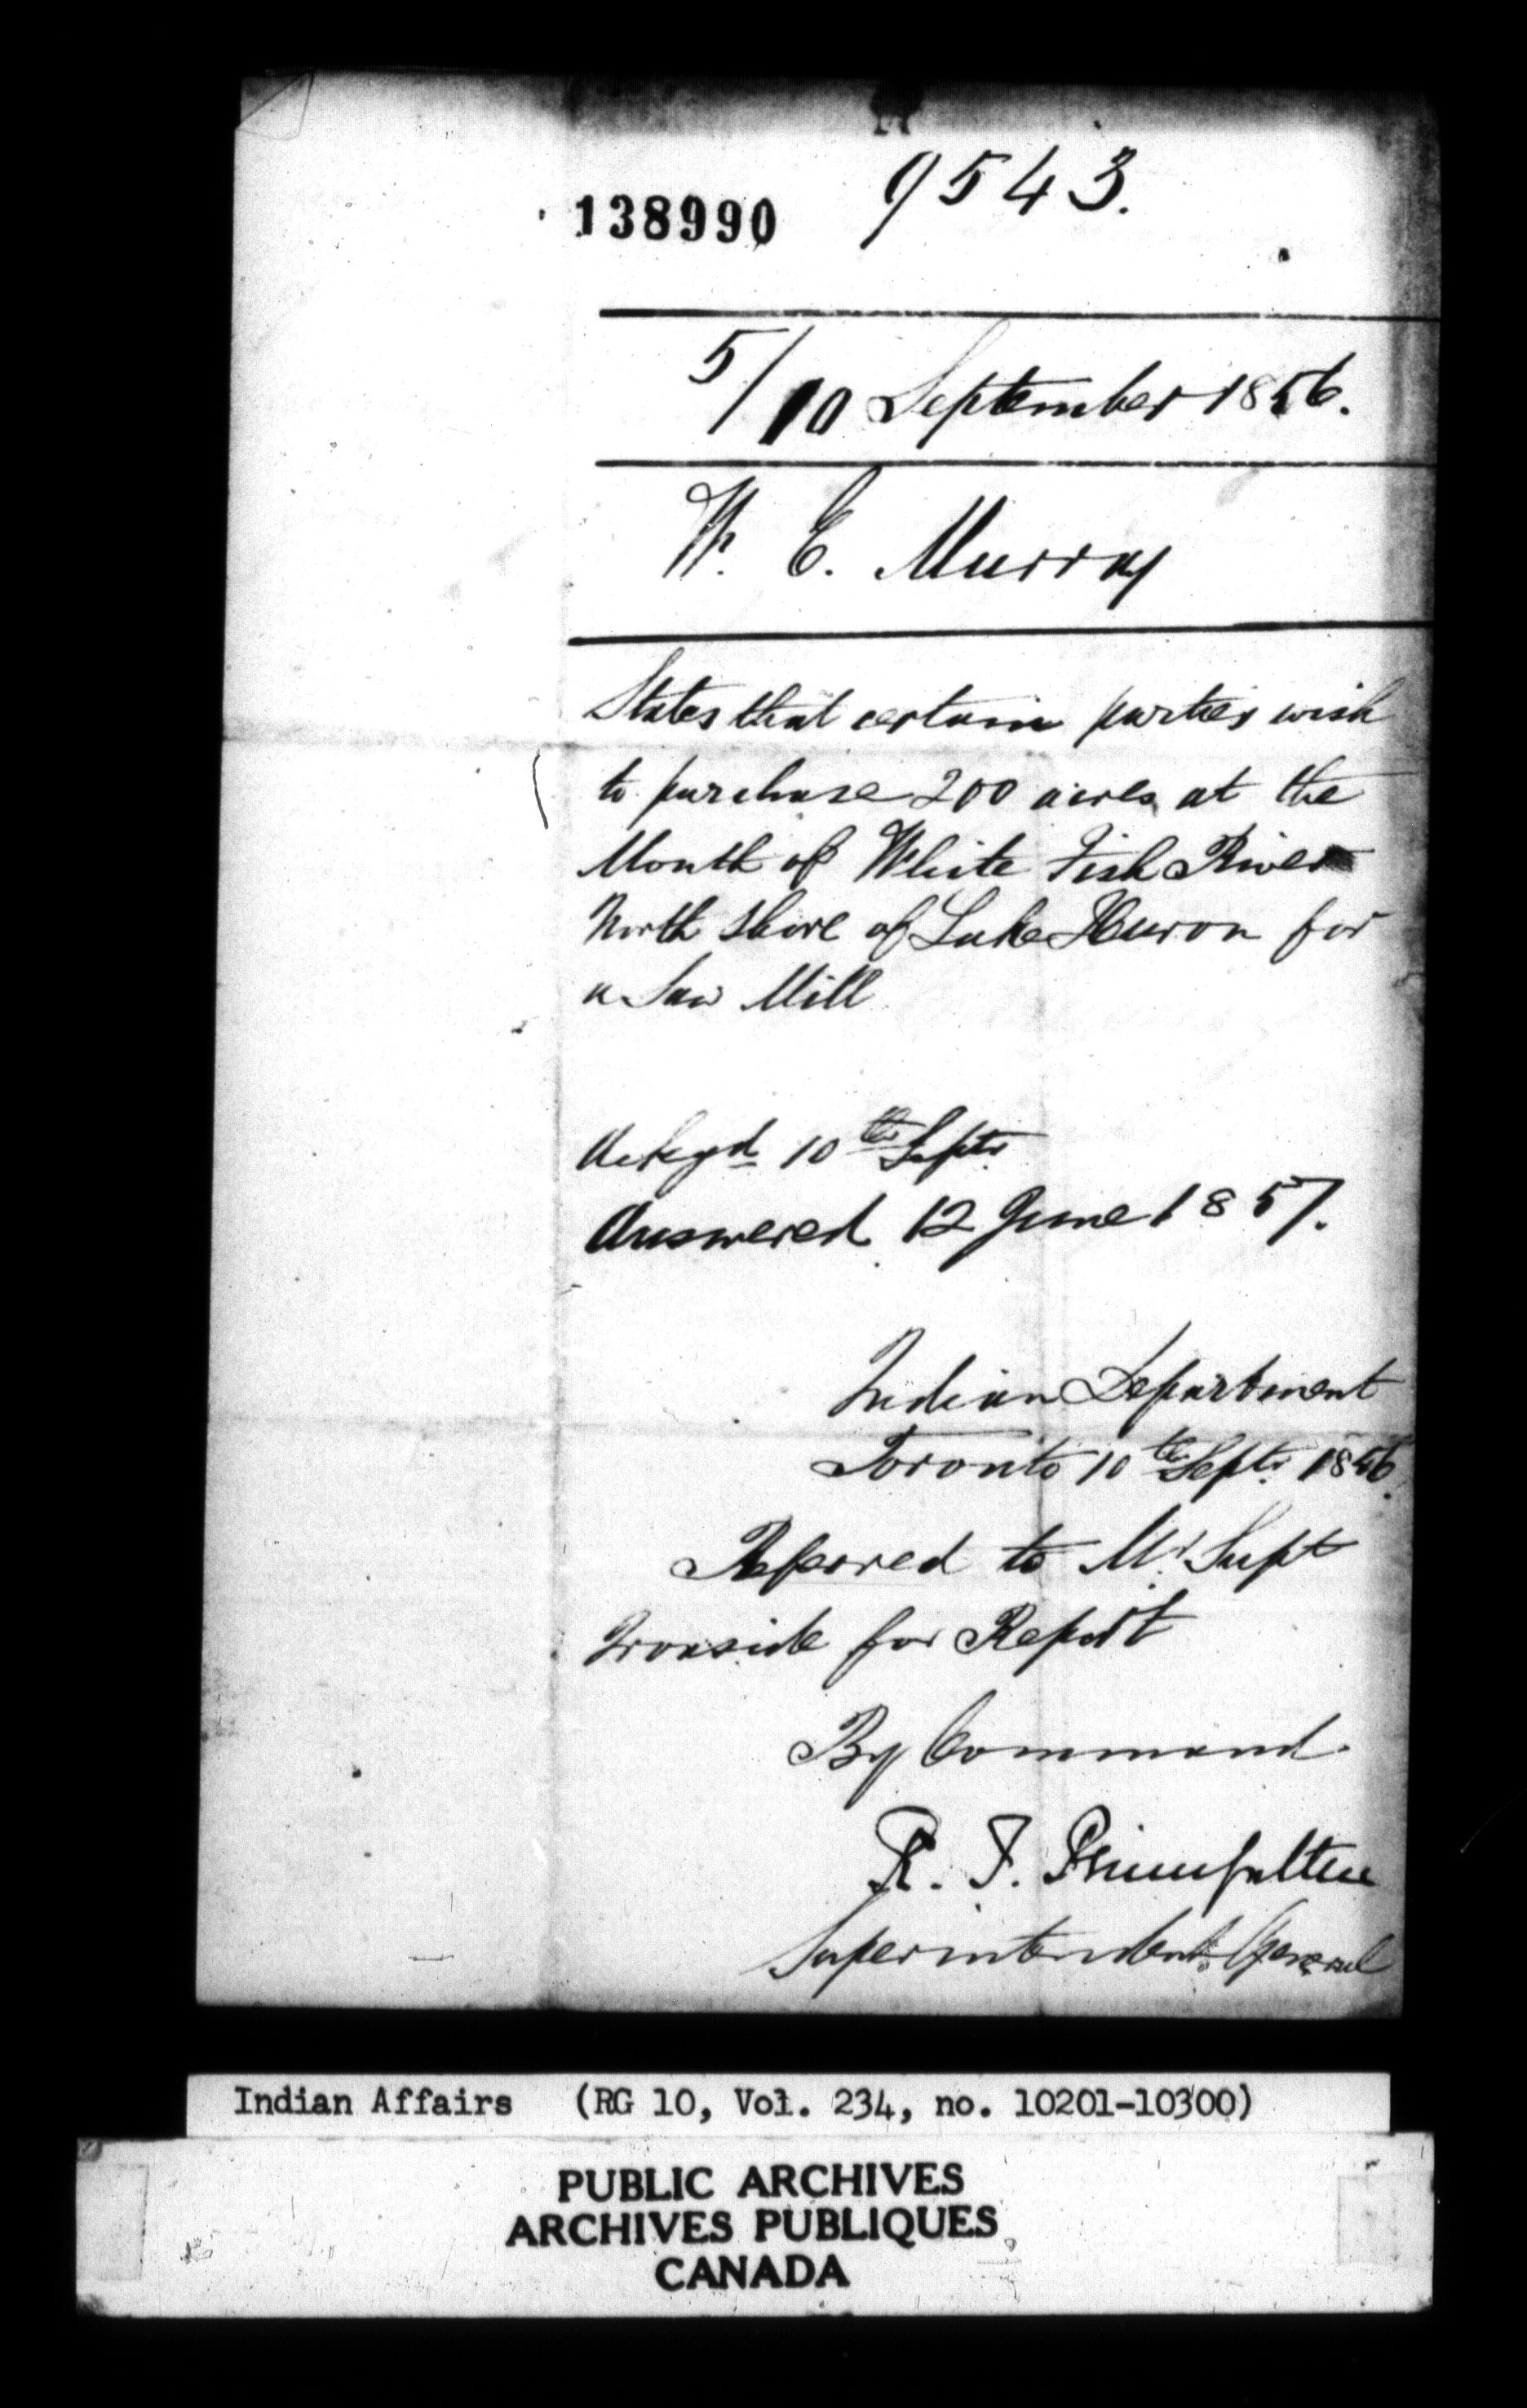 138990 9543.
5/10 September 1856.
W. C. Murray
States that certain parties wish
to purchase 200 acres at the
Mouth of White Fish River
North Shore of Lake Huron for
a Saw Mill
Ackgd 10th Septr
Answered 12 June 1857.
Indian Department
Toronto 10th Septr 1856.
Referred to Mr Supt
Ironside for Report
By Command.
R. T. Pennefather
Superintendent General
Indian Affairs (RG 10, Vol. 234, no. 10201-10300)
PUBLIC ARCHIVES
ARCHIVES PUBLIQUES
CANADA